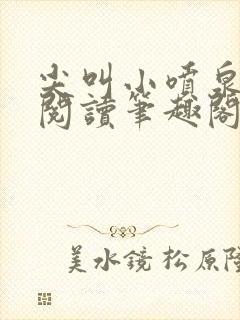 尖叫小噴泉
閱讀筆趣閣
美水鏡 松原隆